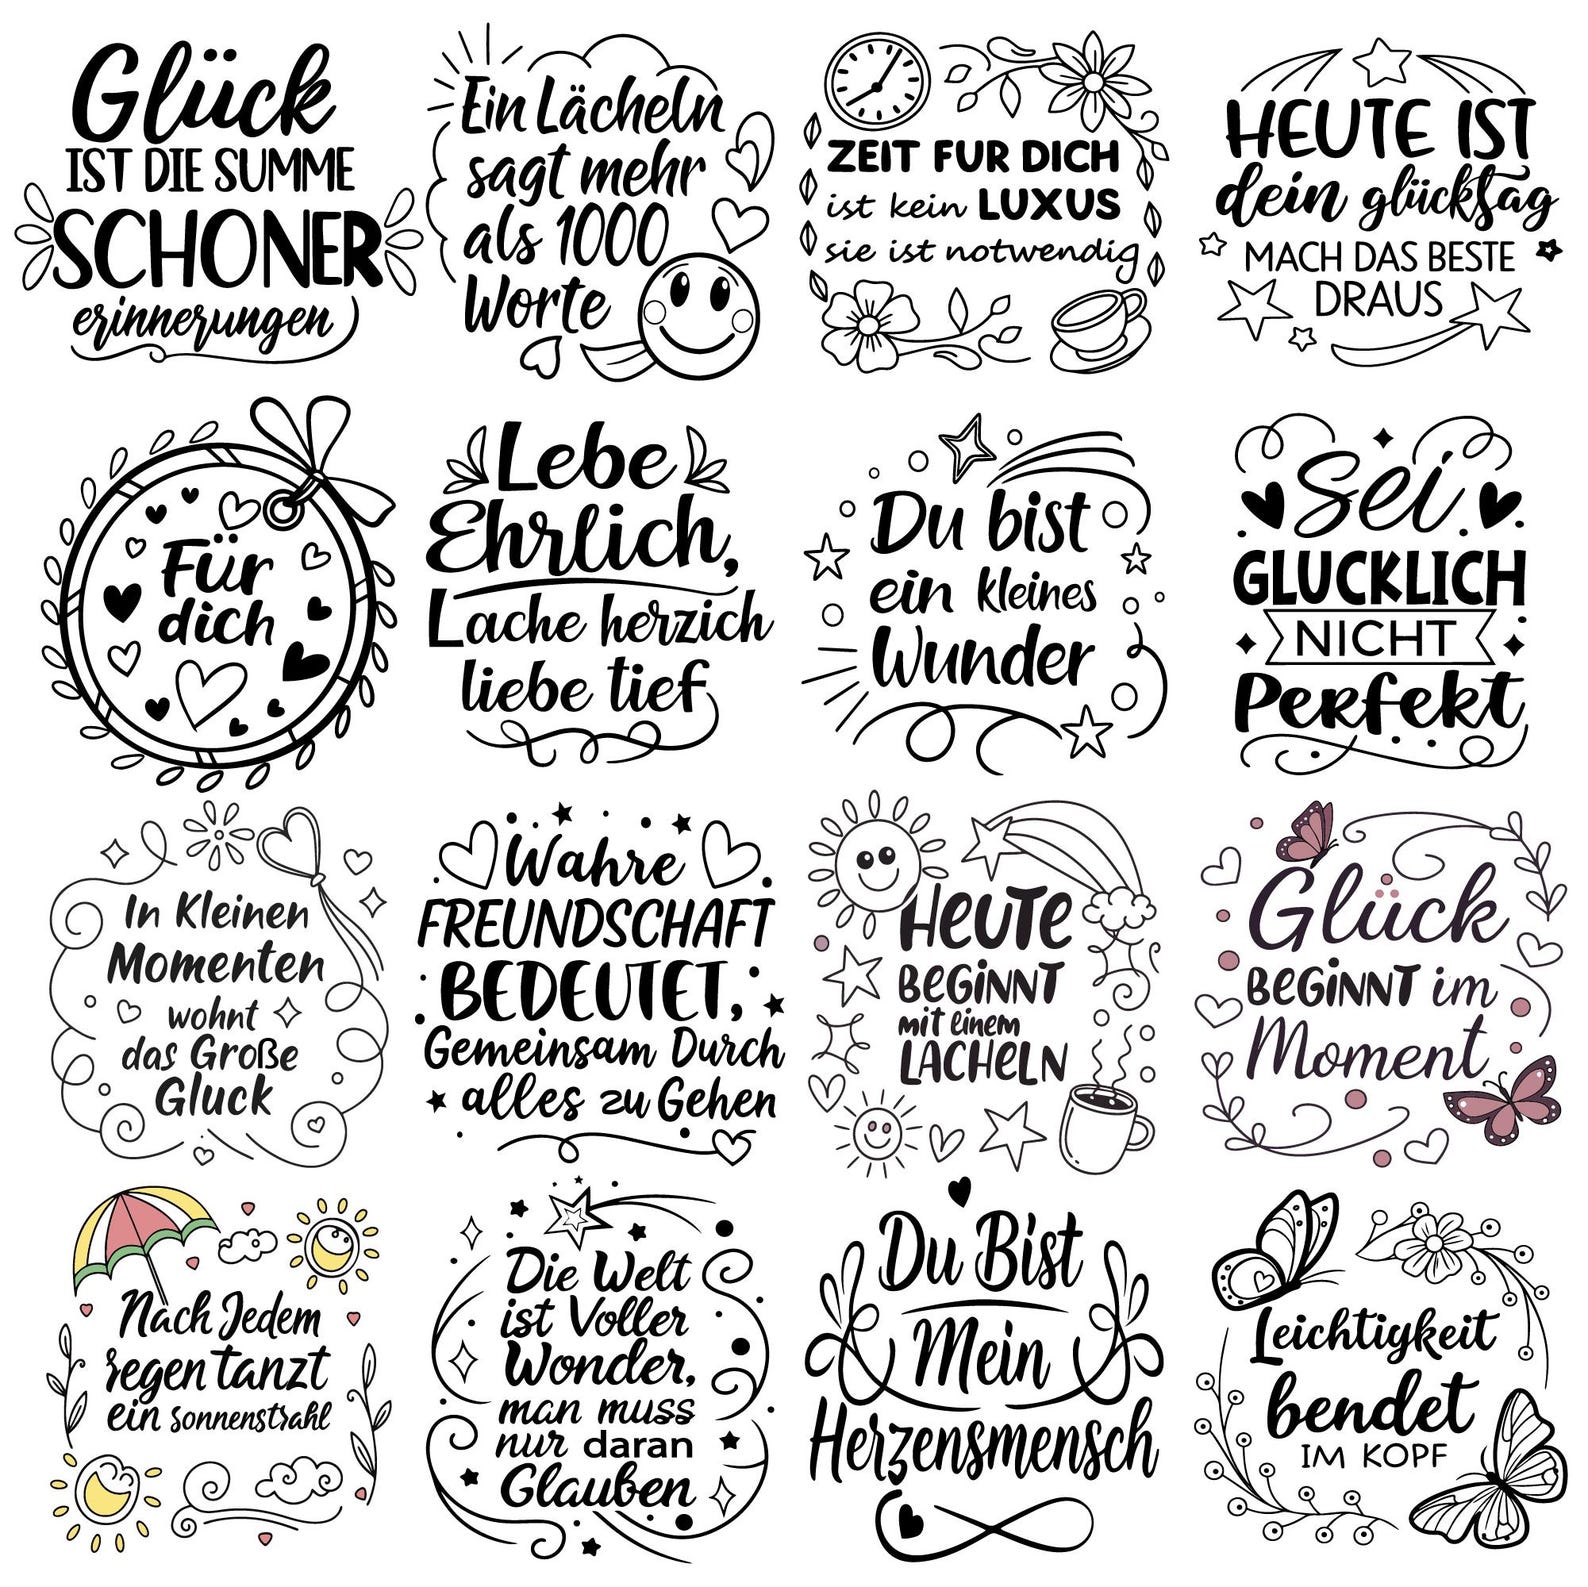 Glück
IST DIE SUMME
SCHONER
erinnerungen
Ein Lächeln
sagt mehr
als 1000
Worte
ZEIT FUR DICH
ist kein LUXUS
sie ist notwendig
HEUTE IST
dein glückstag
MACH DAS BESTE
DRAUS
Für
dich
Lebe
Ehrlich,
Lache herzich
liebe tief
Du bist
ein kleines
Wunder
Sei
GLUCKLICH
NICHT
Perfekt
In Kleinen
Momenten
wohnt
das Große
Gluck
Wahre
FREUNDSCHAFT
BEDEUTET,
Gemeinsam Durch
alles zu Gehen
HEUTE
BEGINNT
mit einem
LACHELN
Glück
BEGINNT im
Moment
Nach Jedem
regen tanzt
ein sonnenstrahl
Die Welt
ist Voller
Wonder,
man muss
nur daran
Glauben
Du Bist
Mein
Herzensmensch
Leichtigkeit
bendet
IM KOPF